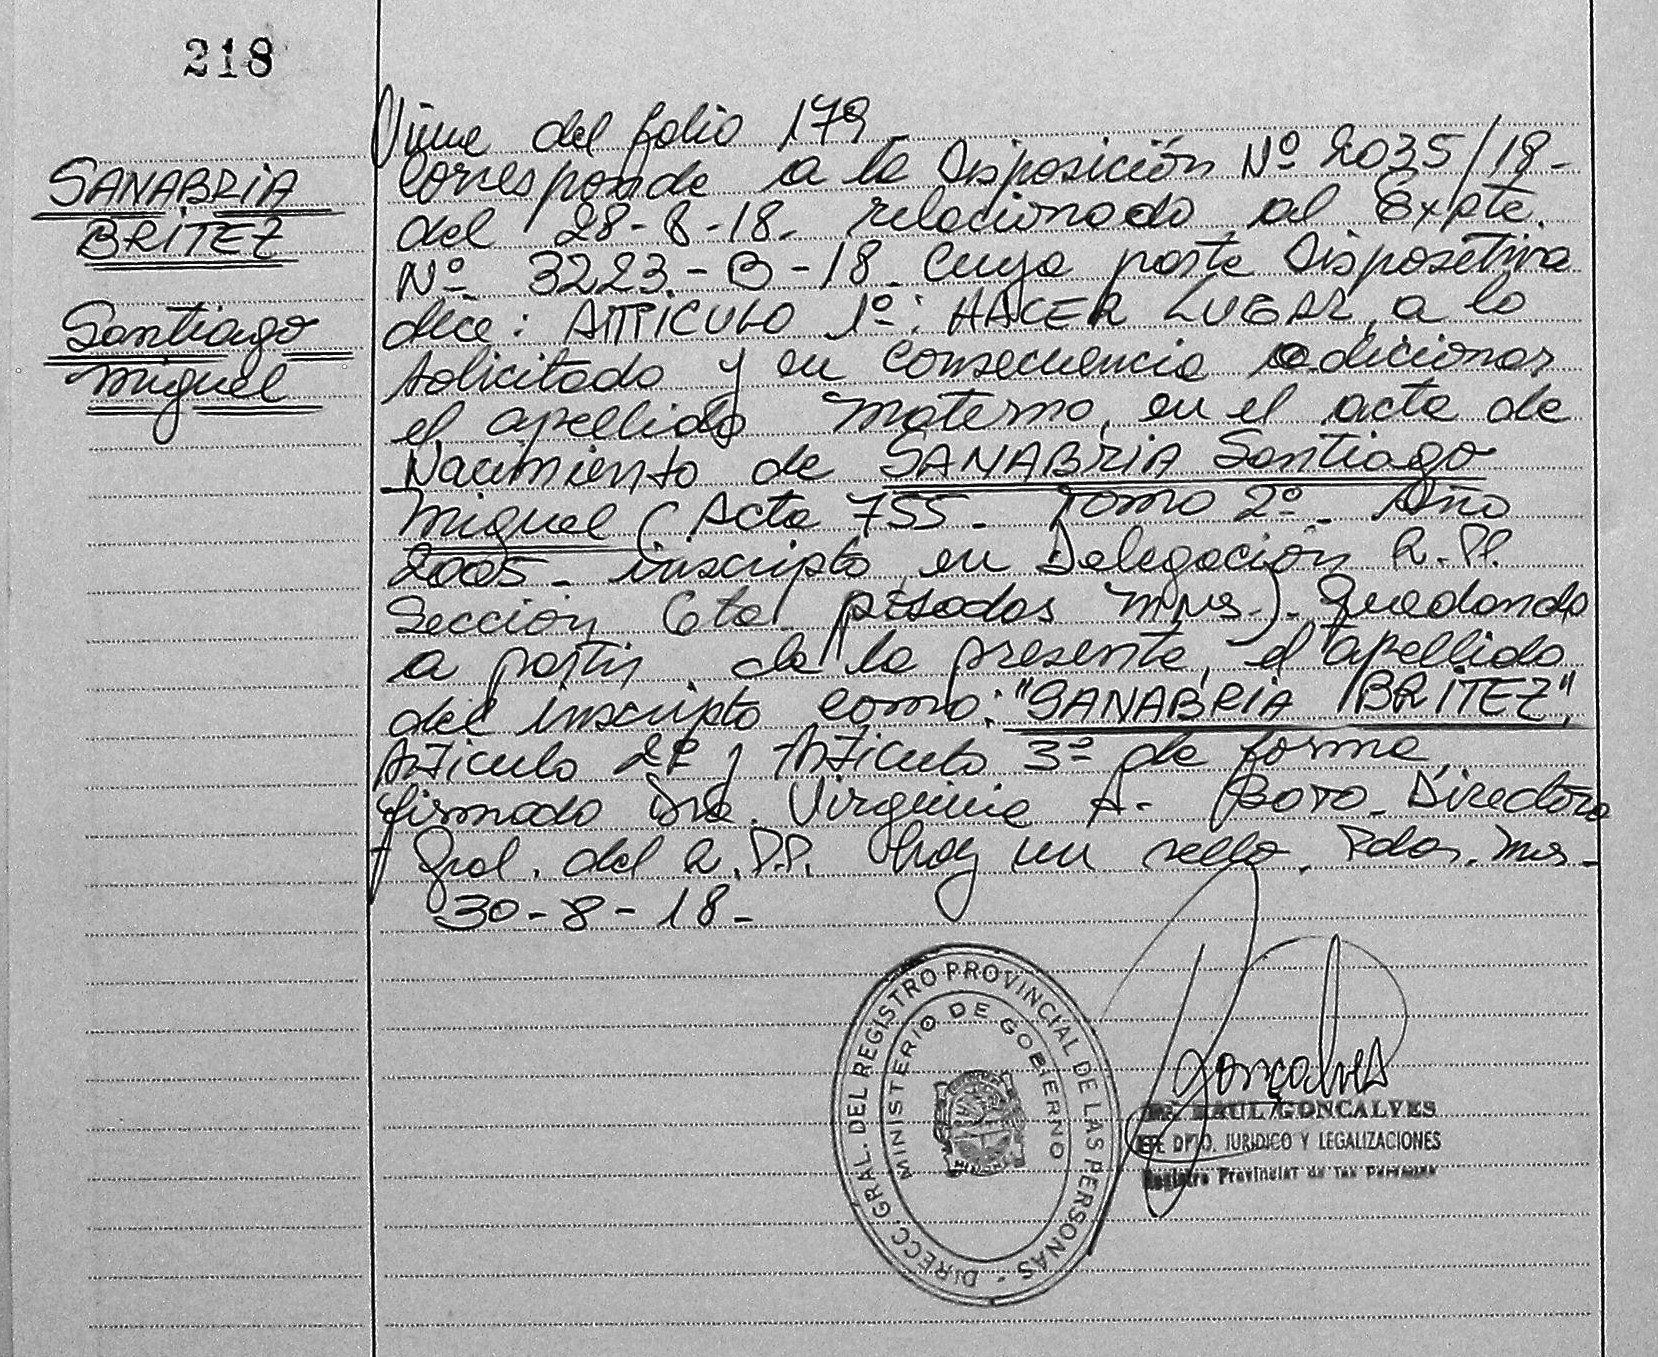 218
SANABRIA
BRITEZ
Santiago
Miguel
Viene del folio 179
Corresponde a la Disposición Nº 2035/18-
del 28-8-18- relacionado al Expte.
Nº 3223-B-18. Cuya parte Dispositiva
dice: ARTICULO 1º: HACER LUGAR, a lo
solicitado y en consecuencia adicionar
el apellido materno, en el acta de
Nacimiento de SANABRIA Santiago
Miguel (Acta 755- Tomo 2º- Año
2005- inscripto en Delegación R.P.P.
Sección 6ta Posadas Mnes.)- Quedando
a partir de la presente, el apellido
del inscripto como: "SANABRIA BRITEZ",
Articulo 2º y Articulo 3º de forma
firmado Dra. Virginia A. BOTO- Directora
Gral. del R.P.P. hay un sello. Pdas. Mns-
30-8-18-
DIRECC GRAL. DEL REGISTRO PROVINCIAL DE LAS PERSONAS -
MINISTERIO DE GOBIERNO
Gonçalves
RAUL GONCALVES
DPTO. JURIDICO Y LEGALIZACIONES
Registro Provincial de las Personas